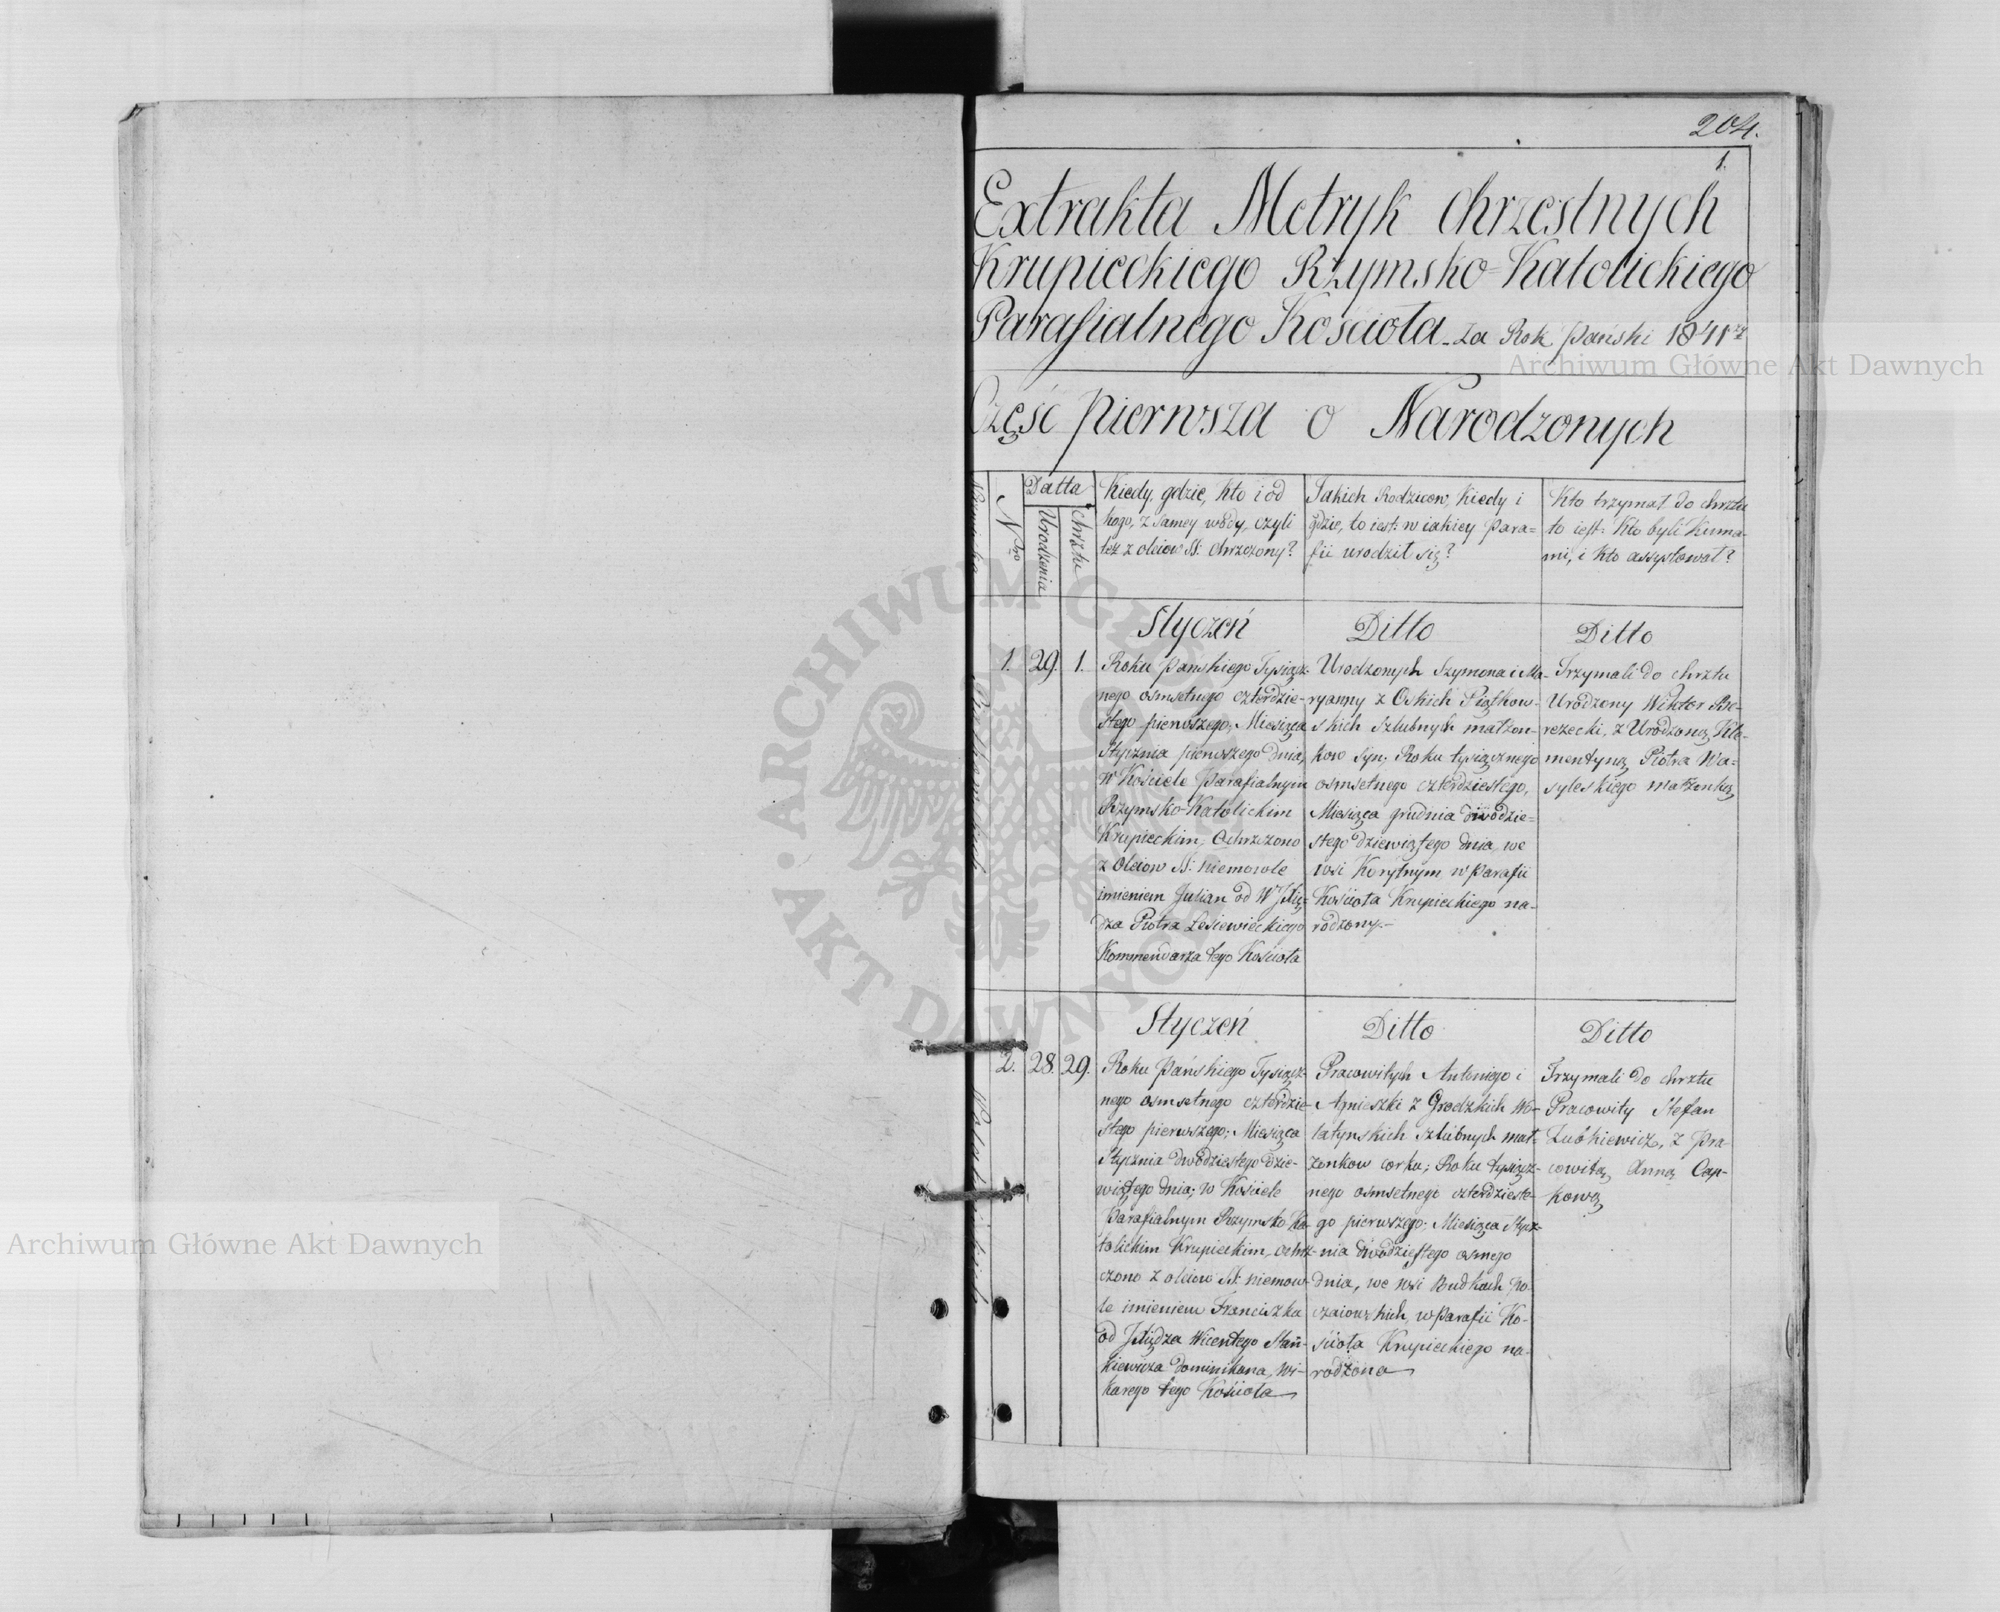 204.
1.
Extrakta Metryk chrzestnych
Krupieckiego Rzymsko-Katolickiego
Parafialnego Kościoła za Rok Pański 1841
Część pierwsza o Narodzonych
Nro
Datta
Urodzenia
Chrztu
Kiedy, gdzie, kto i od
kogo, z samey wody, czyli
też z oleiow SS: chrzczony?
Jakich Rodzicow, kiedy i
gdzie, to iest: w iakiey para=
fii urodził się?
Kto trzymał do chrztu
to iest: Kto byli Kuma-
mi, i kto assystował?
Styczeń
1. 29. 1.
Roku Pańskiego Tysiącz-
nego osmsetnego czterdzie-
stego pierwszego, Miesiąca
Stycznia pierwszego dnia,
w Kościele Parafialnym
Rzymsko-Katolickim
Krupieckim, Ochrzczono
z Oleiow SS: niemowle
imieniem Julian od W JXię-
dza Piotra Lesiewieckiego
Kommendarza tego Kościoła
Ditto
Urodzonych Szymona i Ma-
ryanny z Oskich Piątkow-
skich szlubnych małżon-
kow syn, Roku tysiącznego
osmsetnego czterdziestego,
Miesiąca grudnia dwódzie=
stego dziewiątego dnia, we
wsi Korytnym w Parafii
Kościoła Krupieckiego na-
rodzony.-
Ditto
Trzymali do chrztu
Urodzony Wiktor
rezecki, z Urodzoną Kle-
mentyną Piotra Wa-
syleskiego małżonką
Styczeń
2. 28. 29.
Roku Pańskiego Tysiącz-
nego osmsetnego czterdzie-
stego pierwszego; Miesiąca
Stycznia dwódziestego dzie-
wiątego dnia; w Kościele
Parafialnym Rzymsko Ka-
tolickim Krupieckim, ochrz-
czono z oleiow SS: niemow-
le imieniem Franciszka
od JXiędza Wicentego Stań-
kiewicza Dominikana, Wi-
karego tego Kościoła
Ditto
Pracowitych Antoniego i
Agnieszki z Grodzkich Wo-
łatynskich szlubnych mał-
żonkow corka; Roku tysiącz-
nego osmsetnego czterdzieste-
go pierwszego; Miesiąca Stycz-
nia dwódziestego osmego
dnia, we wsi Budkach Po-
czaiowskich, w Parafii Ko-
ścioła Krupieckiego na-
rodzona
Ditto
Trzymali do chrztu
Pracowity Stefan
Lubkiewicz, z Pra-
cowitą Anną Cap-
kową
Archiwum Główne Akt Dawnych
Archiwum Główne Akt Dawnych
ARCHIWUM GŁÓWNE AKT DAWNYCH